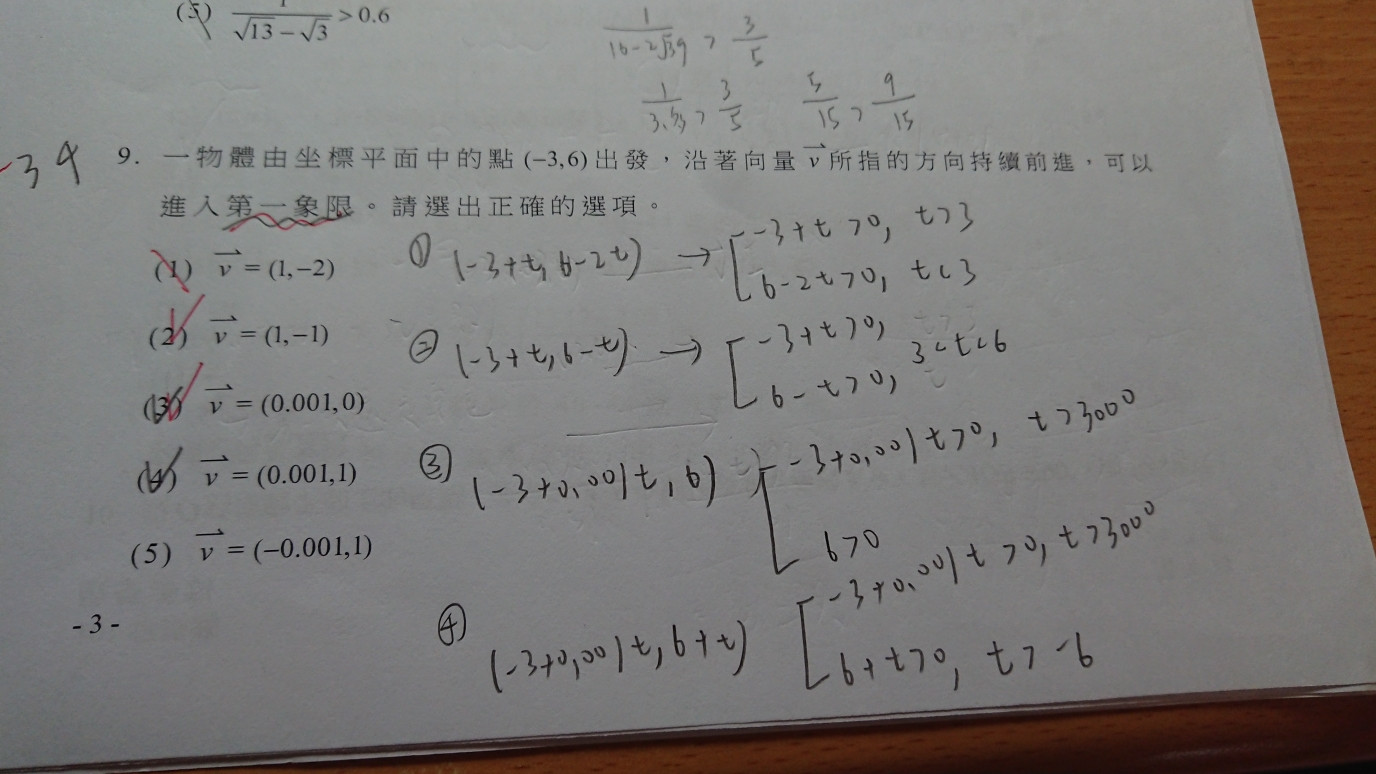 (5) 1/(√13−√3) > 0.6
1/(16−2√39) > 3/5
1/3.55 > 3/5  5/15 > 9/15
34
9. 一物體由坐標平面中的點(−3,6)出發,沿著向量v⃗所指的方向持續前進,可以
進入第一象限。請選出正確的選項。
(1) v⃗ = (1,−2)
① (−3+t, 6−2t) → [ −3+t>0, t>3
6−2t>0, t<3
(2) v⃗ = (1,−1)
② (−3+t, 6−t) → [ −3+t>0,
6−t>0, 3<t<6
(3) v⃗ = (0.001,0)
③ (−3+0.001t, 6) [ −3+0.001t>0, t>3000
6>0
(4) v⃗ = (0.001,1)
(5) v⃗ = (−0.001,1)
④ (−3+0.001t, 6+t) [ −3+0.001t>0, t>3000
6+t>0, t>−6
- 3 -